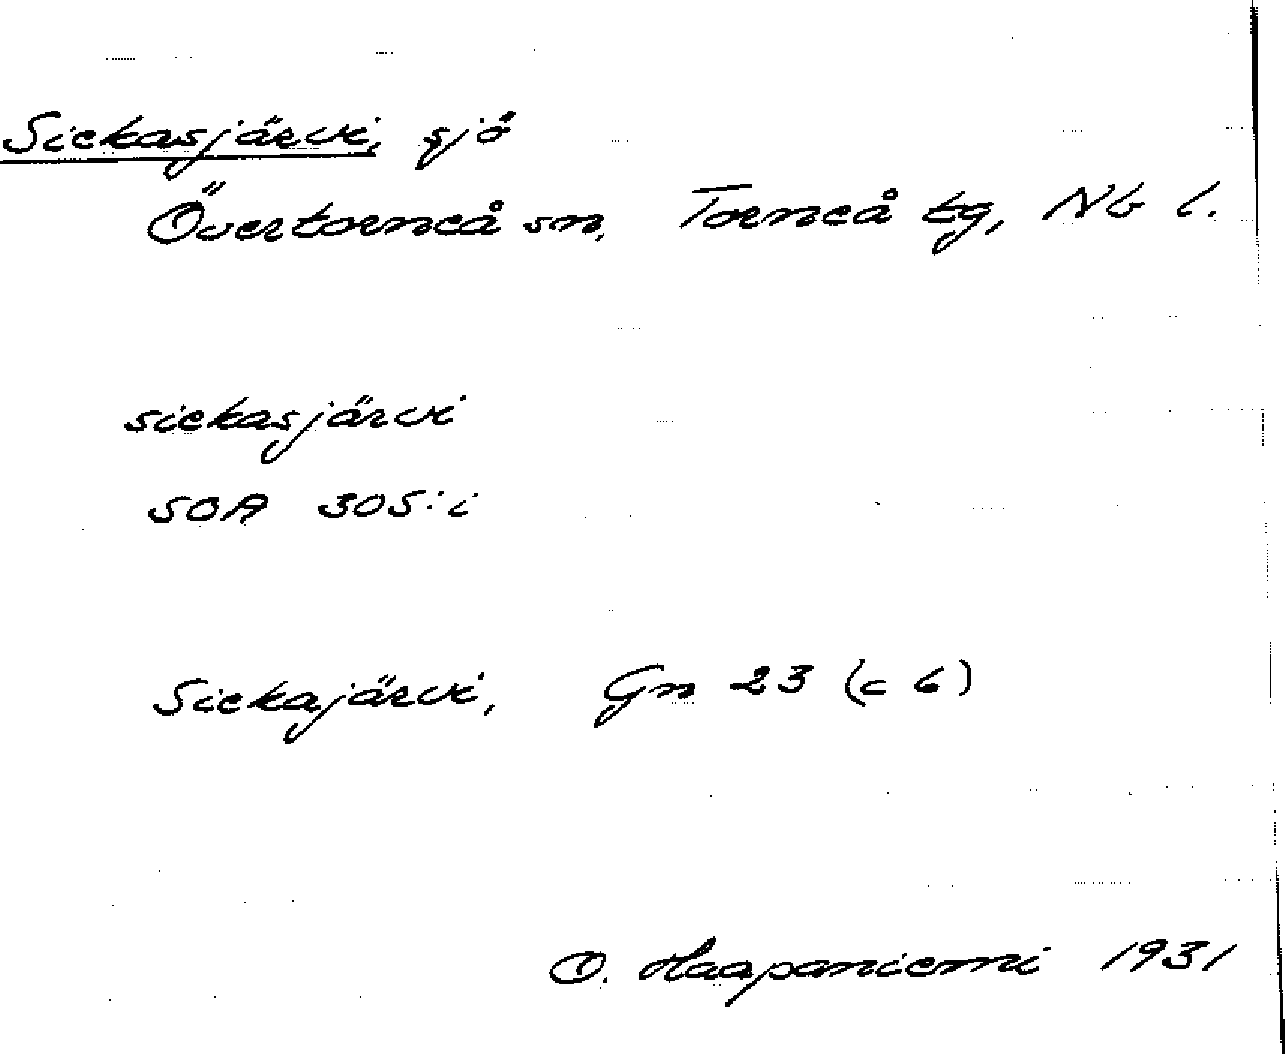 Siekasjärvi, sjö
Övertorneå sn, Torneå tg, Nb l.
siekasjärvi
SOA 305:i
Siekajärvi, Gn 23 (c 6)
O. Haapaniemi 1931